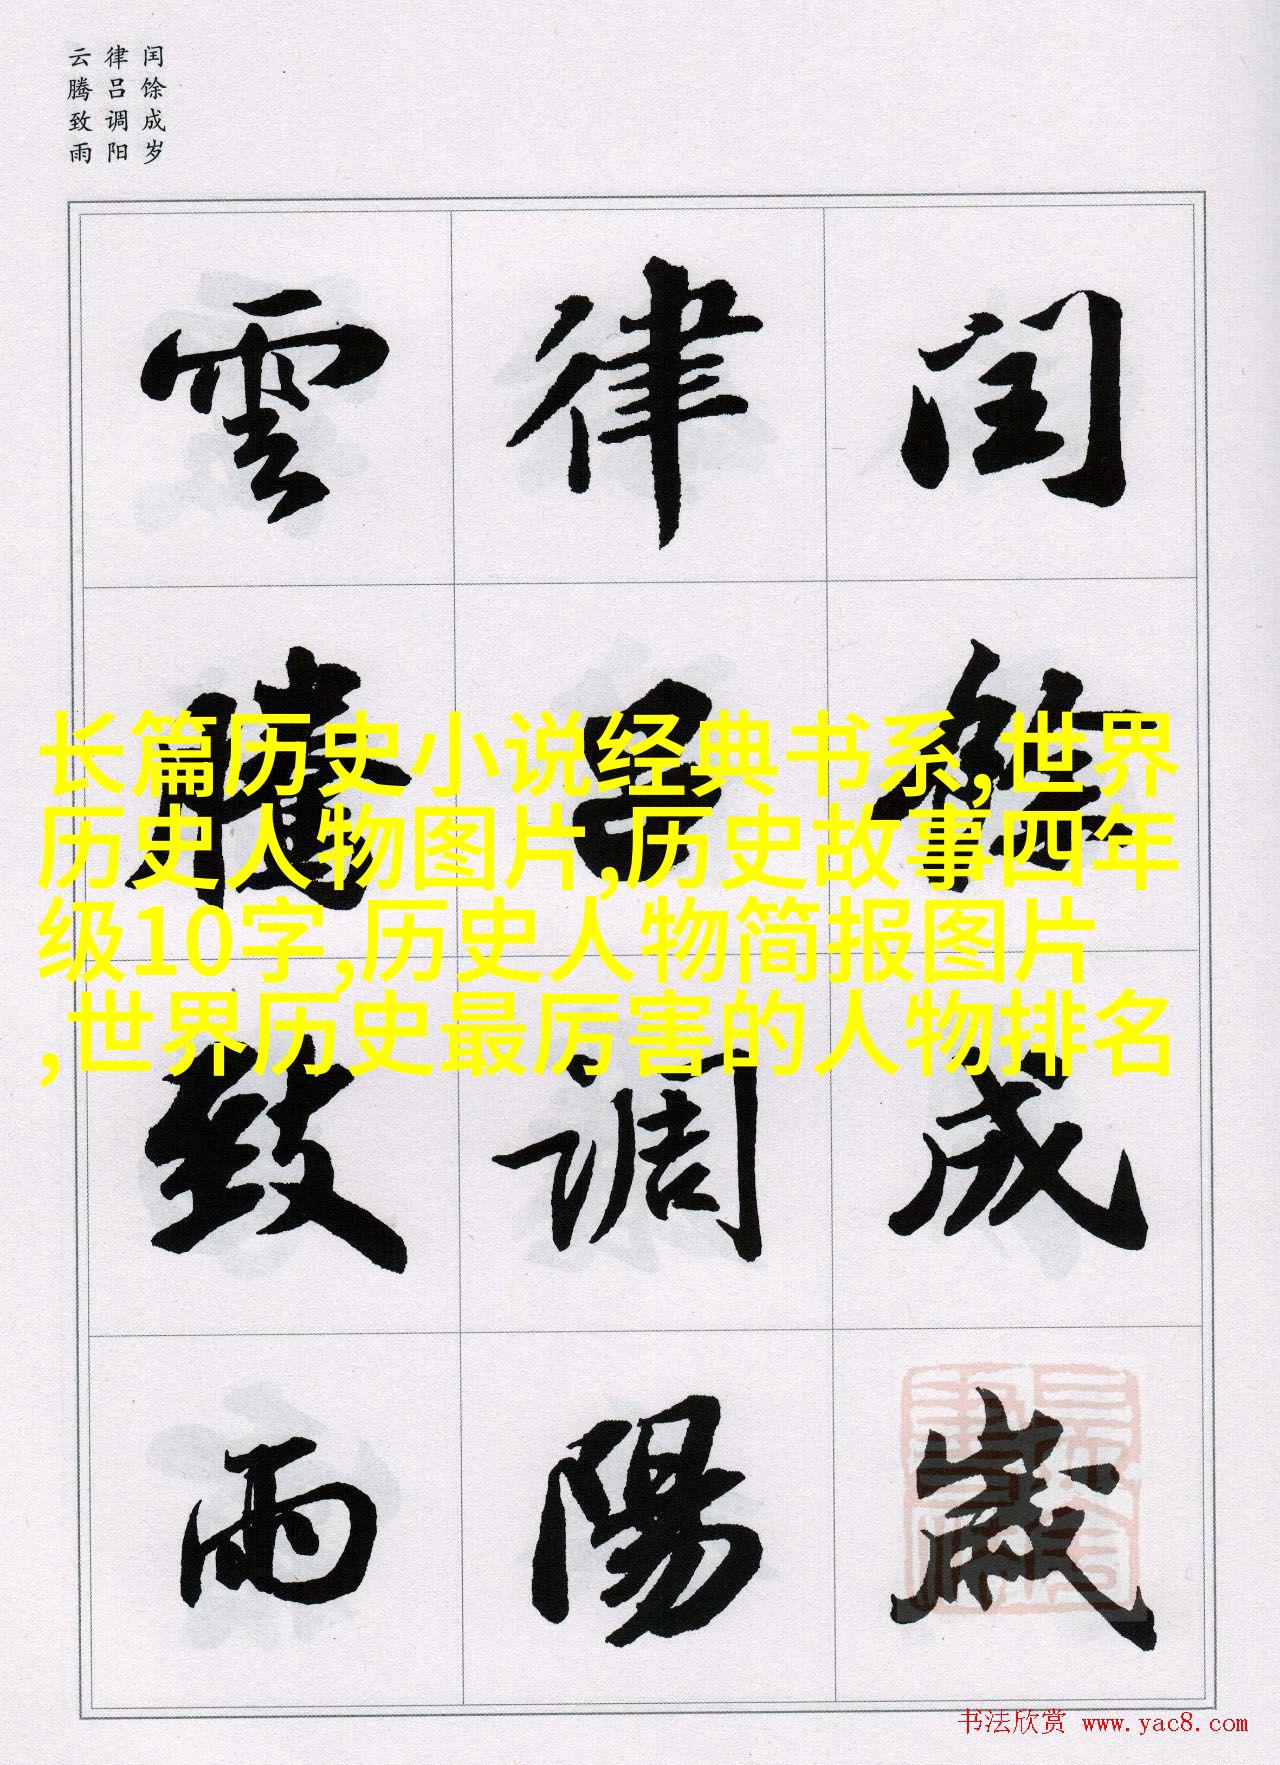 闰馀成岁
律吕调阳
云腾致雨
閏餘成歲
律吕調陽
雲騰致雨
长篇历史小说经典书系,世界
历史人物图片,历史故事四年
级10字,历史人物简报图片
,世界历史最厉害的人物排名
书法欣赏 www.yac8.com